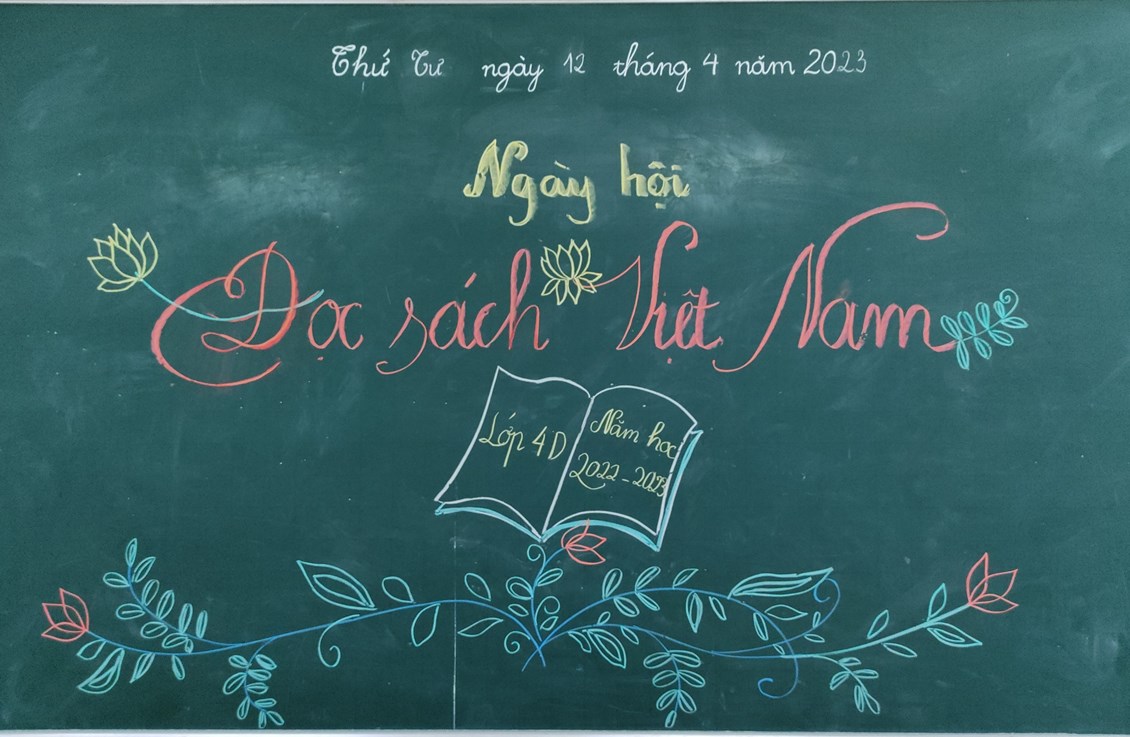 Thứ Tư ngày 12 tháng 4 năm 2023
Ngày hội
Đọc sách Việt Nam
Lớp 4D
Năm học
2022 - 2023